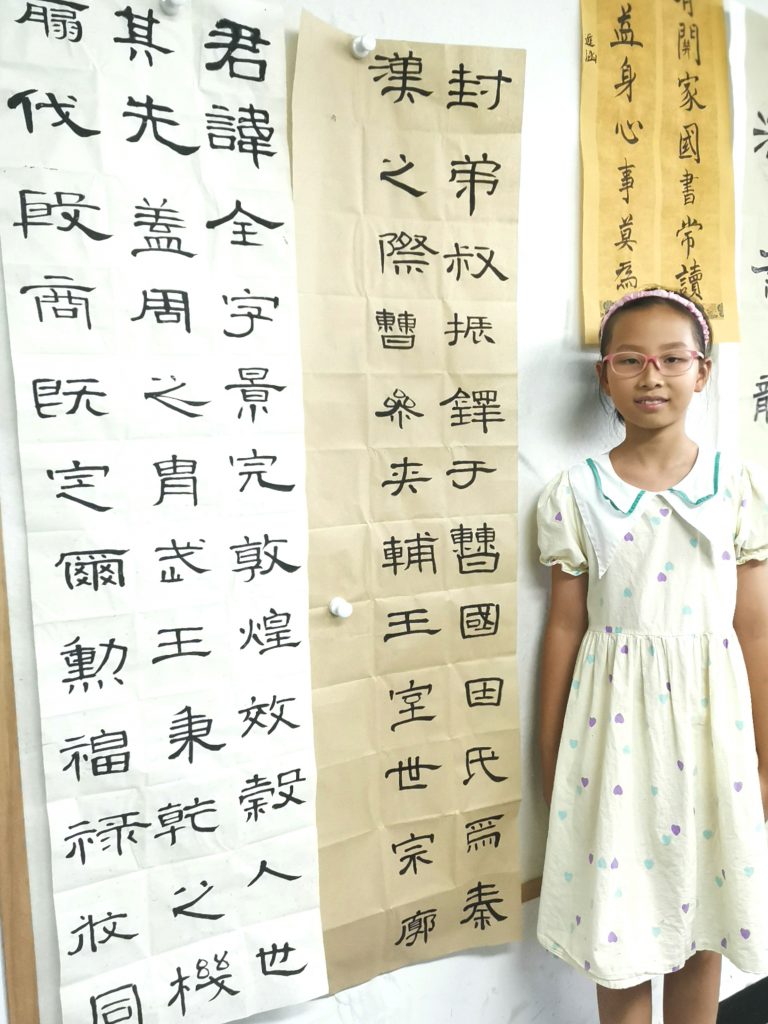 君諱全字景完敦煌效穀人世
其先蓋周之胄武王秉乾之機
翦伐殷商既定爾勳福祿攸同
封弟叔振鐸于曹國因氏焉秦
漢之際曹參夾輔王室世宗廓
有關家國書常讀
益身心事莫為